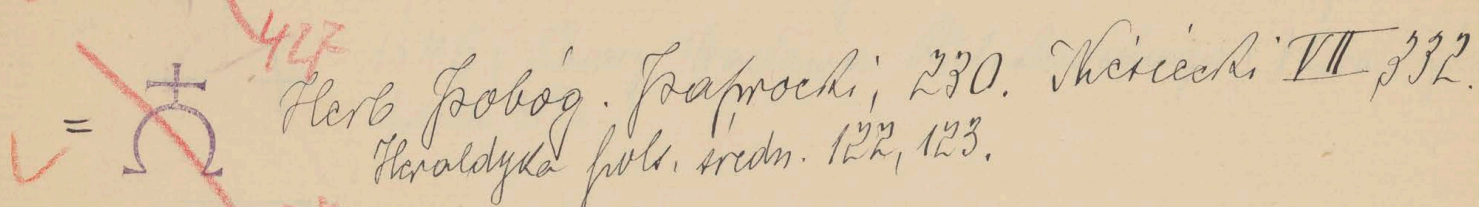 427
= Herb Pobóg. Paprocki, 230. Niesiecki VII 332.
Heraldyka pols. średn. 122, 123.